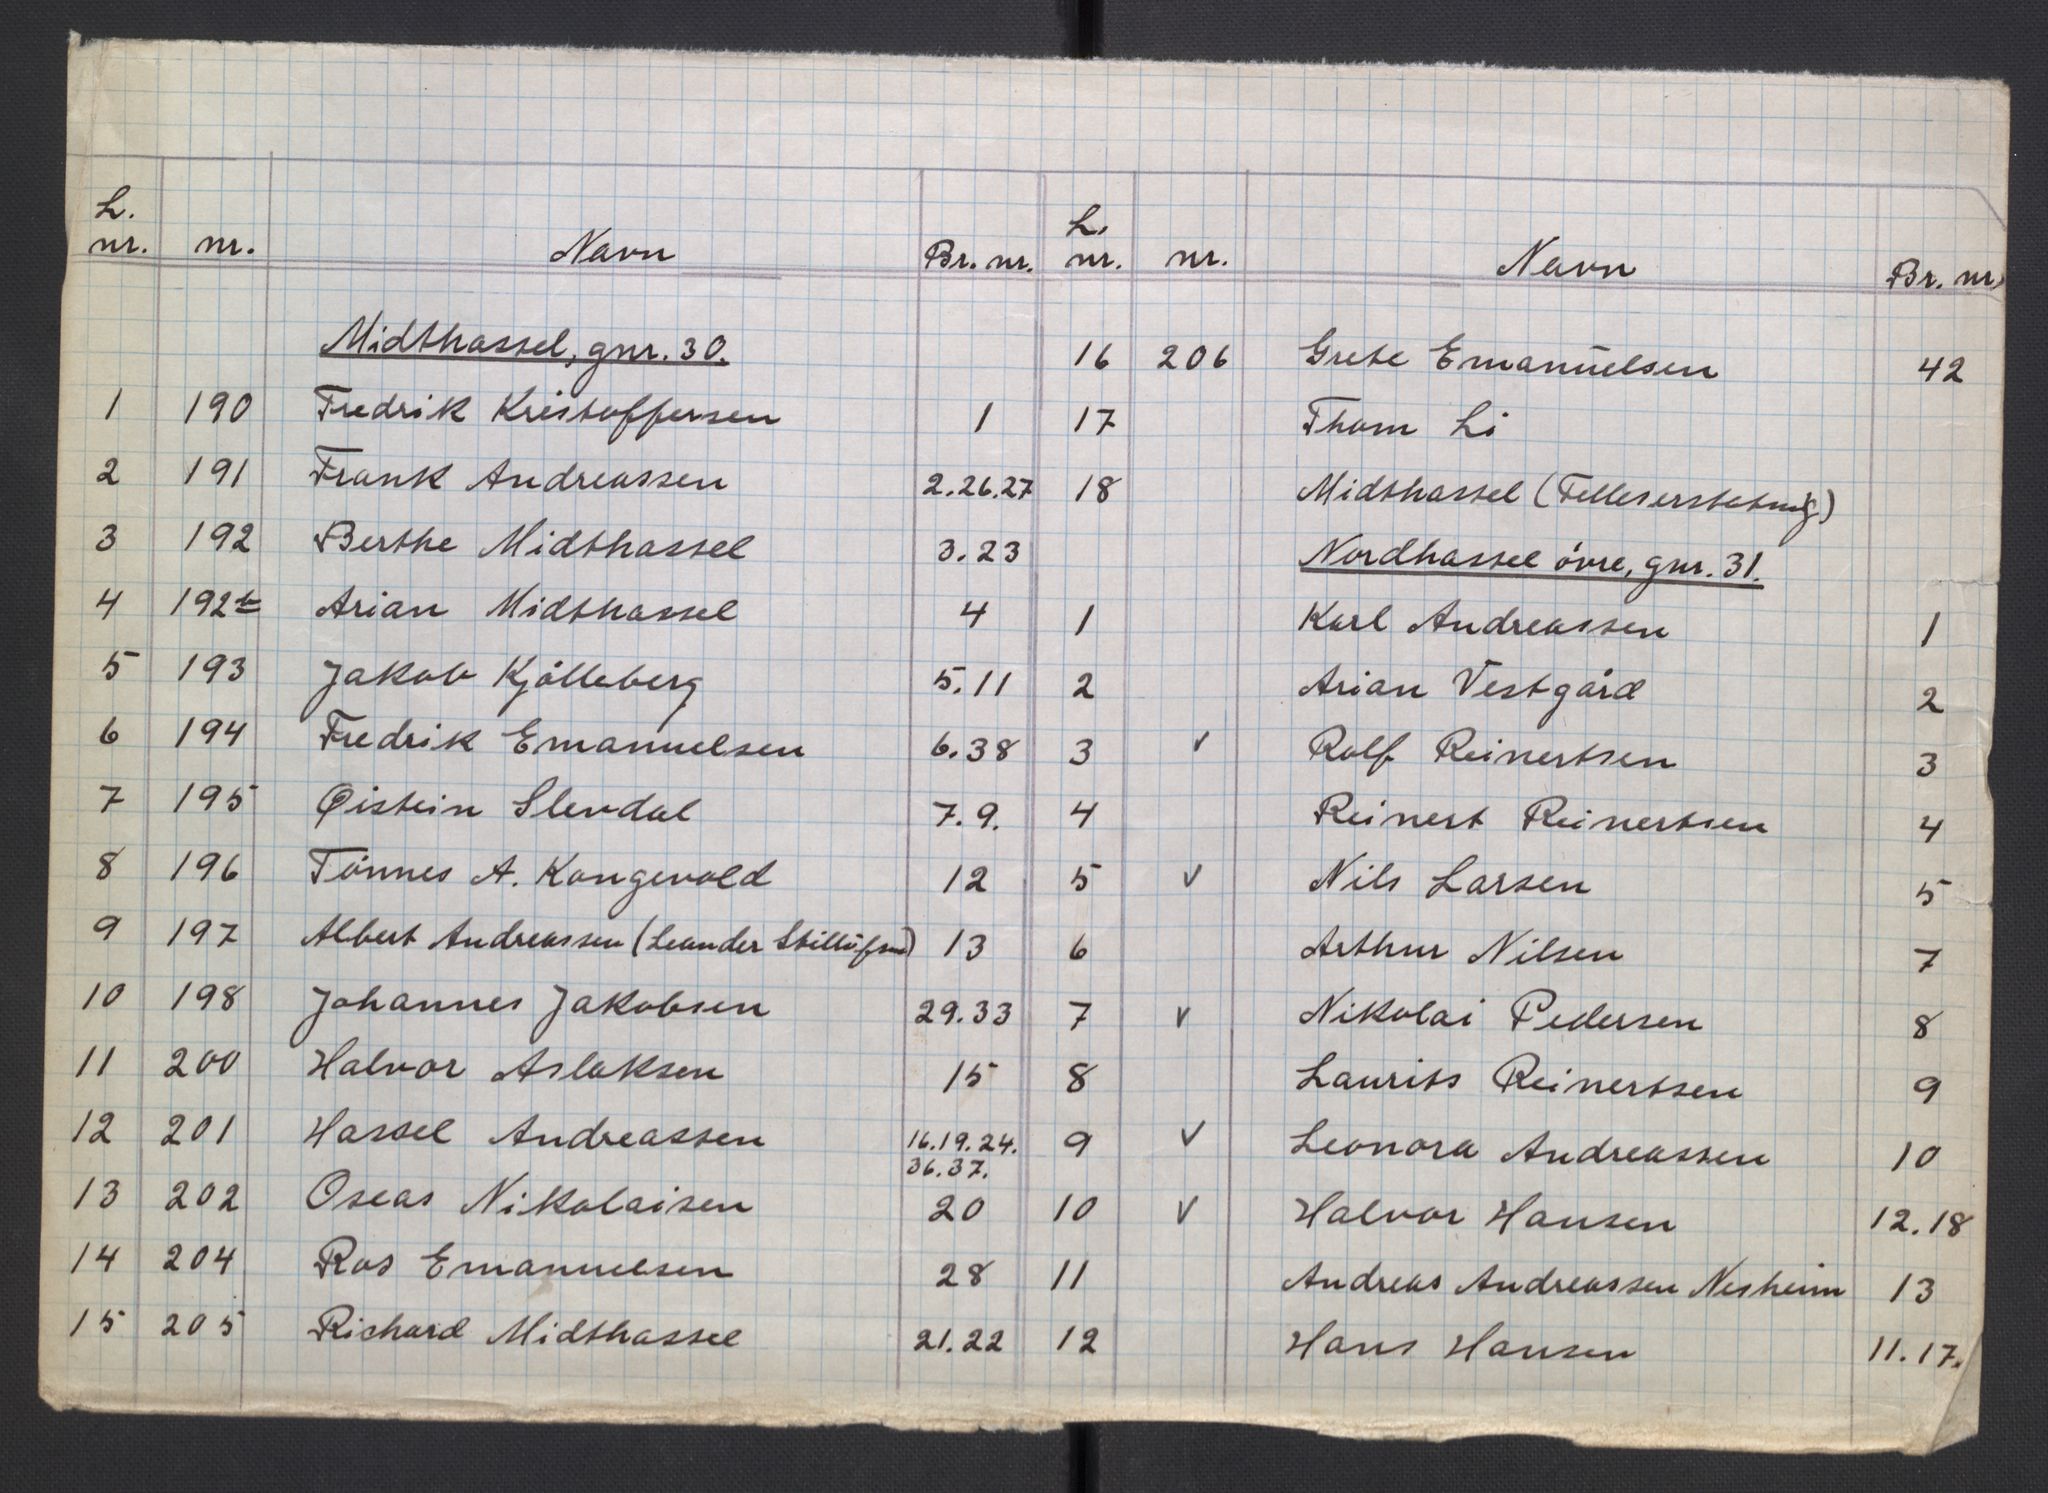 L. nr. nr. Navn Br. nr.
Midthassel, gnr. 30.
1 190 Fredrik Kristoffersen 1
2 191 Frank Andreassen 2.26.27
3 192 Berthe Midthassel 3.23
4 192b Arian Midthassel 4
5 193 Jakob Kjölleberg 5.11
6 194 Fredrik Emanuelsen 6.38
7 195 Øistein Slevdal 7.9.
8 196 Tönnes A. Kongevold 12
9 197 Albert Andreassen (Leander 13
10 198 Johannes Jakobsen 29.33
11 200 Halvor Aslaksen 15
12 201 Hassel Andreassen 16.19.24.
36.37.
13 202 Oseas Nikolaisen 20
14 204 Ras Emanuelsen 28
15 205 Richard Midthassel 21.22
L. nr. nr. Navn Br. nr.
16 206 Grete Emanuelsen 42
17 Thom Li
18 Midthassel (Felleserstatning)
Nordhassel övre, gnr. 31.
1 Karl Andreassen 1
2 Arian Vestgård 2
3 v Rolf Reinertsen 3
4 Reinert Reinertsen 4
5 v Nils Larsen 5
6 Arthur Nilsen 7
7 v Nikolai Pedersen 8
8 Laurits Reinertsen 9
9 v Leonora Andreassen 10
10 v Halvor Hansen 12.18
11 Andreas Andreassen Nesheim 13
12 Hans Hansen 11.17.